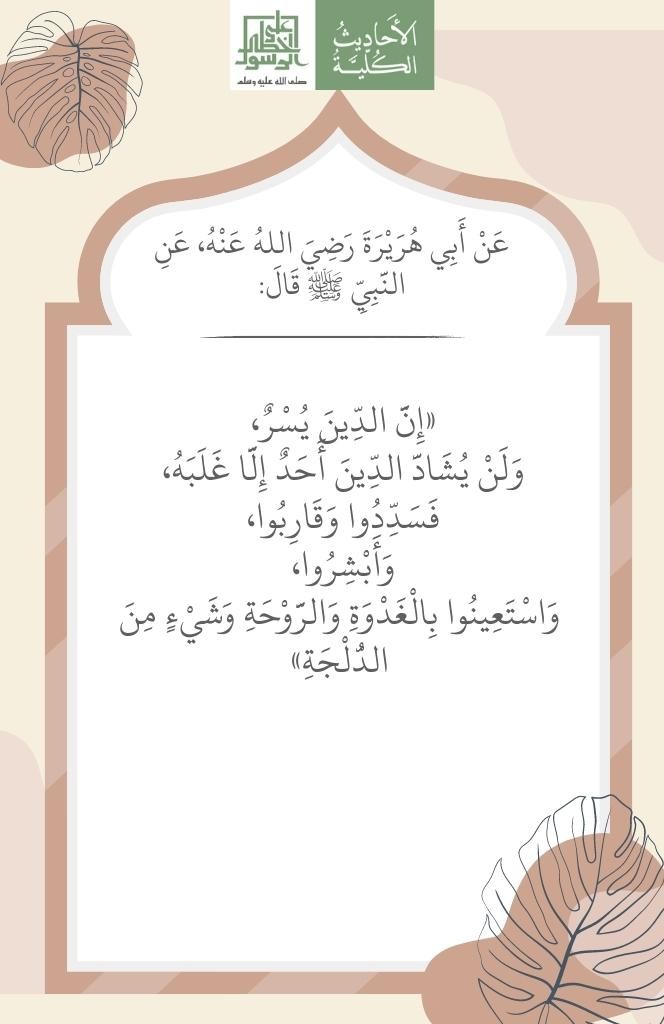 الأَحَادِيثُ
الكُلِّيَّةُ
على
خطى
الرسول
صلى الله عليه وسلم
عَنْ أَبِي هُرَيْرَةَ رَضِيَ اللهُ عَنْهُ، عَنِ
النَّبِيِّ ﷺ قَالَ:
«إِنَّ الدِّينَ يُسْرٌ،
وَلَنْ يُشَادَّ الدِّينَ أَحَدٌ إِلَّا غَلَبَهُ،
فَسَدِّدُوا وَقَارِبُوا،
وَأَبْشِرُوا،
وَاسْتَعِينُوا بِالْغَدْوَةِ وَالرَّوْحَةِ وَشَيْءٍ مِنَ
الدُّلْجَةِ»